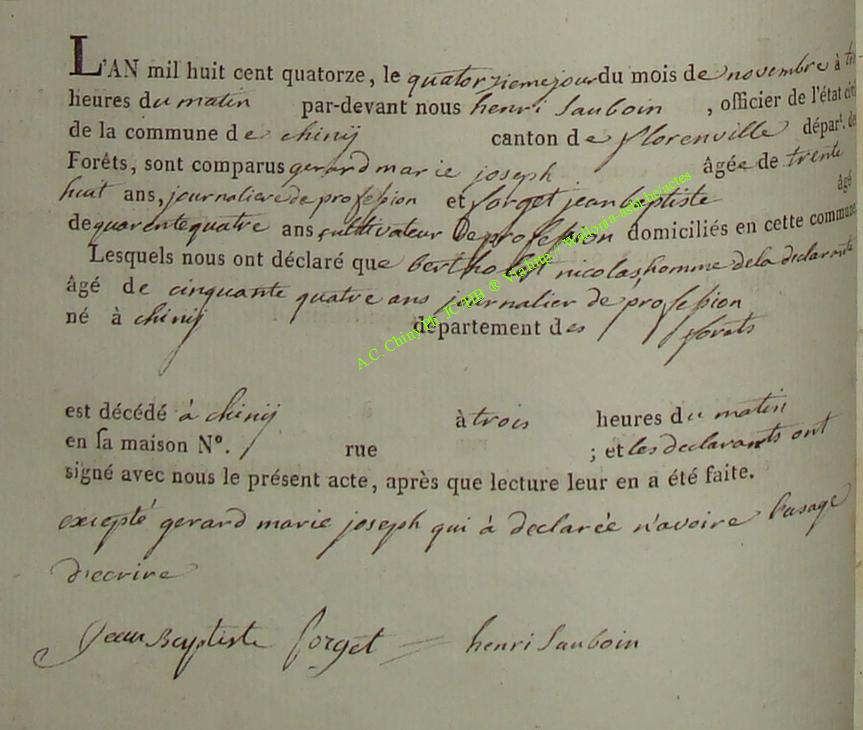 L'AN mil huit cent quatorze, le quatorzieme jour du mois de novembre à
heures du matin par-devant nous henri Sauboin , officier de l'état civil
de la commune de chinij canton de florenville départ. des
Forêts, sont comparus gerard marie joseph âgée de trente
huit ans, journaliere de profession et forget jean beptiste âgé
de quarentequatre ans cultivateur De profession domiciliés en cette commune
Lesquels nous ont déclaré que nicolas homme de la declarante
âgé de cinquante quatre ans journalier de profession
né à chinij département des forets
est décédé à chinij à trois heures du matin
en sa maison N°. rue ; et les declarants ont
signé avec nous le présent acte, après que lecture leur en a été faite.
excepté gerard marie joseph qui à declarée n'avoire l'usage
D'ecrire
Jean Baptiste forget henri Sauboin
A.C. Chiny